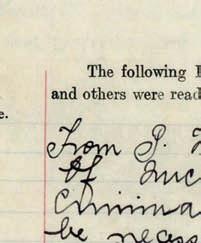 The following
and others were read
e.
From P.
Of
Crimina
be necess